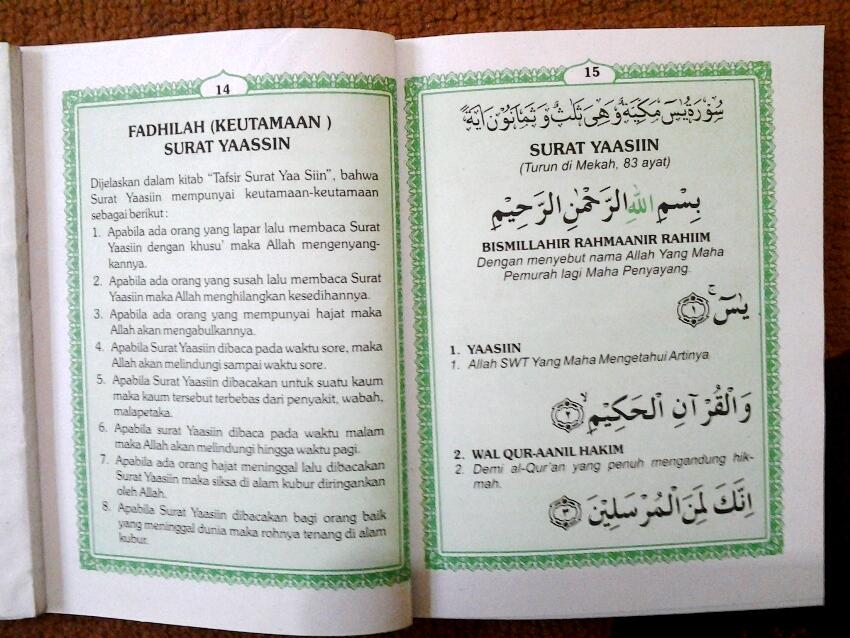 14
FADHILAH (KEUTAMAAN )
SURAT YAASSIN
Dijelaskan dalam kitab “Tafsir Surat Yaa Siin”, bahwa
Surat Yaasiin mempunyai keutamaan-keutamaan
sebagai berikut :
1. Apabila ada orang yang lapar lalu membaca Surat
Yaasiin dengan khusu’ maka Allah mengenyang-
kannya.
2. Apabila ada orang yang susah lalu membaca Surat
Yaasiin maka Allah menghilangkan kesedihannya.
3. Apabila ada orang yang mempunyai hajat maka
Allah akan mengabulkannya.
4. Apabila Surat Yaasiin dibaca pada waktu sore, maka
Allah akan melindungi sampai waktu sore.
5. Apabila Surat Yaasiin dibacakan untuk suatu kaum
maka kaum tersebut terbebas dari penyakit, wabah,
malapetaka.
6. Apabila surat Yaasiin dibaca pada waktu malam
maka Allah akan melindungi hingga waktu pagi.
7. Apabila ada orang hajat meninggal lalu dibacakan
Surat Yaasiin maka siksa di alam kubur diringankan
oleh Allah.
8. Apabila Surat Yaasiin dibacakan bagi orang baik
yang meninggal dunia maka rohnya tenang di alam
kubur.
15
سُوْرَةُ يٰسٓ مَكِّيَّةٌ وَهِيَ ثَلٰثٌ وَثَمَانُوْنَ اٰيَةً
SURAT YAASIIN
(Turun di Mekah, 83 ayat)
بِسْمِ اللهِ الرَّحْمٰنِ الرَّحِيْمِ
BISMILLAHIR RAHMAANIR RAHIIM
Dengan menyebut nama Allah Yang Maha
Pemurah lagi Maha Penyayang.
يٰسٓ ۚ ﴿١﴾
1. YAASIIN
1. Allah SWT Yang Maha Mengetahui Artinya
وَالْقُرْآنِ الْحَكِيْمِ ۙ ﴿٢﴾
2. WAL QUR-AANIL HAKIM
2. Demi al-Qur’an yang penuh mengandung hik-
mah.
اِنَّكَ لَمِنَ الْمُرْسَلِيْنَ ﴿٣﴾